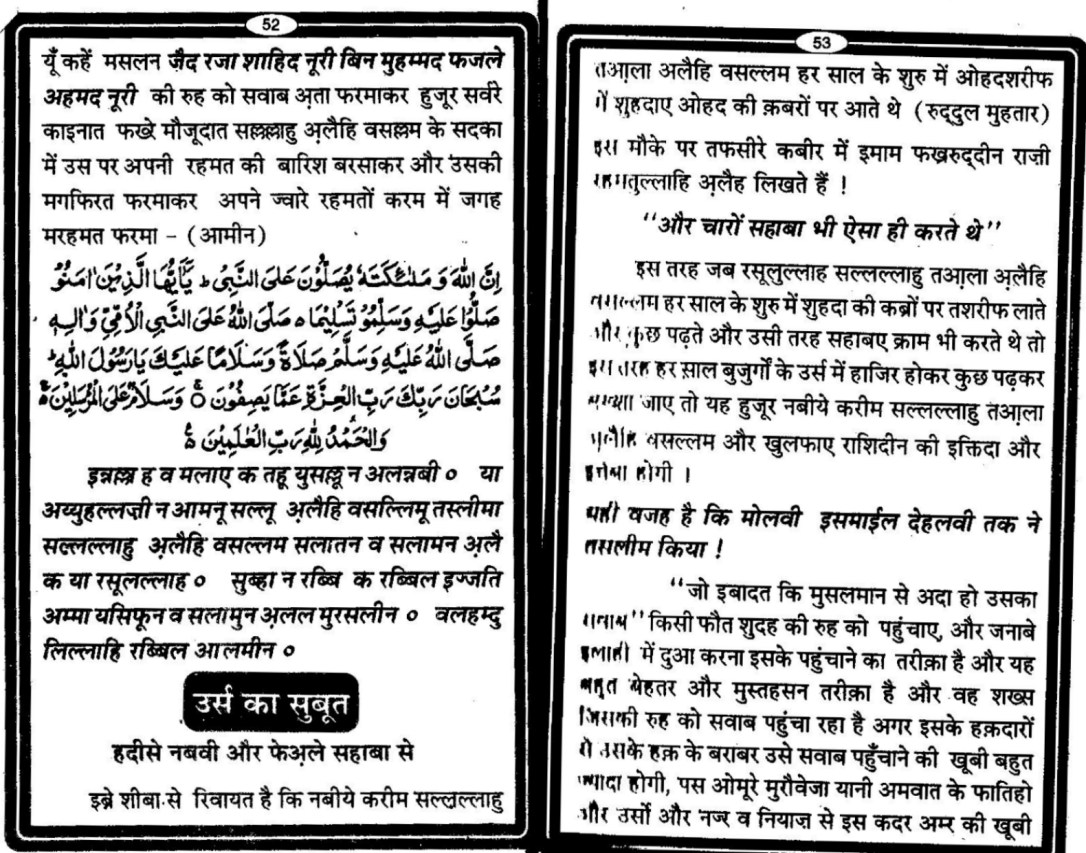 52
यूँ कहें मसलन ज़ैद रजा शाहिद नूरी बिन मुहम्मद फजले
अहमद नूरी की रुह को सवाब अ़ता फरमाकर हुजूर सर्वरे
काइनात फख्रे मौजूदात सल्लल्लाहु अ़लैहि वसल्लम के सदका
में उस पर अपनी रहमत की बारिश बरसाकर और उसकी
मगफिरत फरमाकर अपने ज्वारे रहमतों करम में जगह
मरहमत फरमा - (आमीन)
اِنَّ اللّٰهَ وَ مَلٰٓئِكَتَهٗ يُصَلُّوْنَ عَلَى النَّبِىِّ ط يٰٓاَيُّهَا الَّذِيْنَ اٰمَنُوْ
صَلُّوْا عَلَيْهِ وَسَلِّمُوْ تَسْلِيْمًا ه صَلَّى اللّٰهُ عَلَى النَّبِىِّ الْاُمِّىِّ وَاٰلِهٖ
صَلَّى اللّٰهُ عَلَيْهِ وَسَلَّمْ صَلَاةً وَّسَلَامًا عَلَيْكَ يَارَسُوْلَ اللّٰهِ ط
سُبْحَانَ رَبِّكَ رَبِّ الْعِزَّةِ عَمَّا يَصِفُوْنَ ه وَسَلَامٌ عَلَى الْمُرْسَلِيْنَ ه
وَالْحَمْدُ لِلّٰهِ رَبِّ الْعٰلَمِيْنَ ه
इन्नल्ला ह व मलाए क तहू युसल्लू न अलन्नबी ० या
अय्युहल्लज़ी न आमनू सल्लू अ़लैहि वसल्लिमू तस्लीमा
सल्लल्लाहु अ़लैहि वसल्लम सलातन व सलामन अ़लै
क या रसूलल्लाह ० सुब्हा न रब्बि क रब्बिल इज्जति
अम्मा यसिफून व सलामुन अ़लल मुरसलीन ० वलहम्दु
लिल्लाहि रब्बिल आलमीन ०
उर्स का सुबूत
हदीसे नबवी और फेअ़ले सहाबा से
इब्ने शीबा से रिवायत है कि नबीये करीम सल्लल्लाहु
53
तआ़ला अलैहि वसल्लम हर साल के शुरु में ओहदशरीफ
में शुहदाए ओहद की क़बरों पर आते थे (रुद्दुल मुहतार)
इस मौके पर तफसीरे कबीर में इमाम फख़रुद्दीन राज़ी
रहमतुल्लाहि अ़लैह लिखते हैं !
“और चारों सहाबा भी ऐसा ही करते थे”
इस तरह जब रसूलुल्लाह सल्लल्लाहु तआ़ला अ़लैहि
वसल्लम हर साल के शुरु में शुहदा की कब्रों पर तशरीफ लाते
और कुछ पढ़ते और उसी तरह सहाबए क्राम भी करते थे तो
इस तरह हर साल बुजुर्गों के उर्स में हाजिर होकर कुछ पढ़कर
बख्शा जाए तो यह हुजूर नबीये करीम सल्लल्लाहु तआ़ला
अलैहि वसल्लम और खुलफाए राशिदीन की इक्तिदा और
होगी ।
यही वजह है कि मोलवी इसमाईल देहलवी तक ने
तसलीम किया !
“जो इबादत कि मुसलमान से अदा हो उसका
सवाब” किसी फौत शुदह की रुह को पहुंचाए, और जनाबे
इलाही में दुआ करना इसके पहुंचाने का तरीक़ा है और यह
बहुत बेहतर और मुस्तहसन तरीक़ा है और वह शख्स
जिसकी रुह को सवाब पहुंचा रहा है अगर इसके हक़दारों
से उसके हक़ के बराबर उसे सवाब पहुँचाने की खूबी बहुत
ज्यादा होगी, पस ओमूरे मुरौवेजा यानी अमवात के फातिहो
और उर्सो और नज्र व नियाज़ से इस कदर अम्र की खूबी